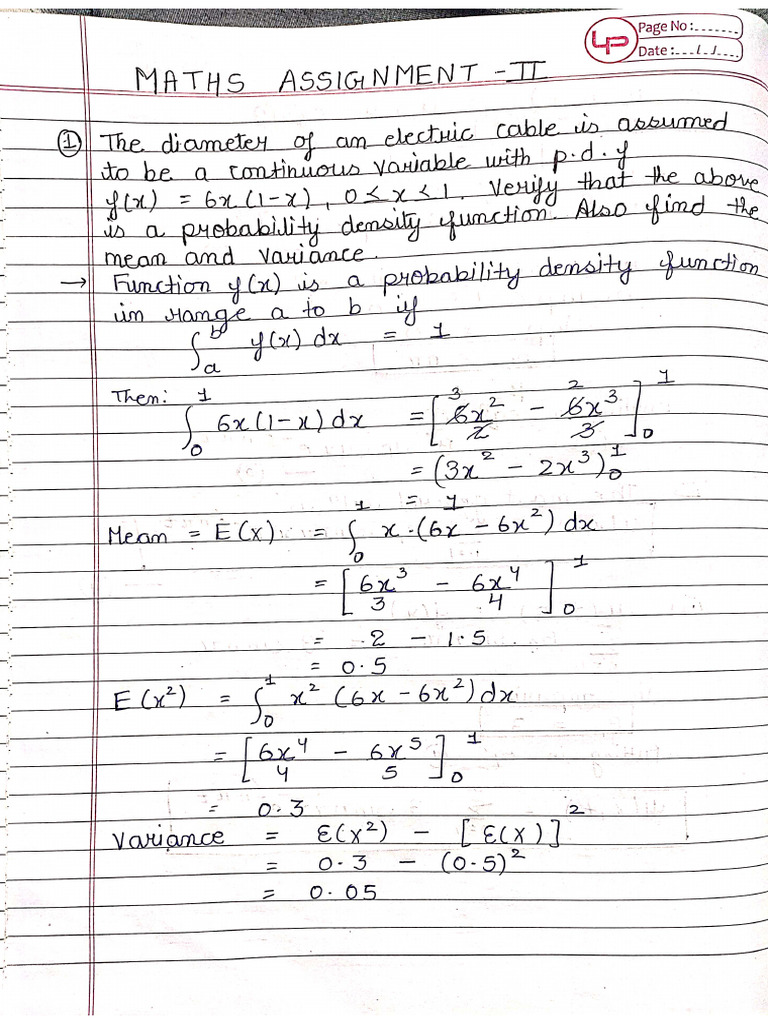 LP Page No:.......
Date:...../...../.....
MATHS ASSIGNMENT - II
① The diameter of an electric cable is assumed
to be a continuous variable with p.d.f
f(x) = 6x(1-x), 0<x<1. Verify that the above
is a probability density function. Also find the
mean and variance.
→ Function f(x) is a probability density function
in range a to b if
∫_a^b f(x) dx = 1
Then: ∫_0^1 6x(1-x) dx = [6x²/2 - 6x³/3]_0^1
= (3x² - 2x³)_0^1
= 1
Mean = E(x) = ∫_0^1 x.(6x - 6x²) dx
= [6x³/3 - 6x⁴/4]_0^1
= 2 - 1.5
= 0.5
E(x²) = ∫_0^1 x² (6x - 6x²) dx
= [6x⁴/4 - 6x⁵/5]_0^1
= 0.3
Variance = E(x²) - [E(x)]²
= 0.3 - (0.5)²
= 0.05